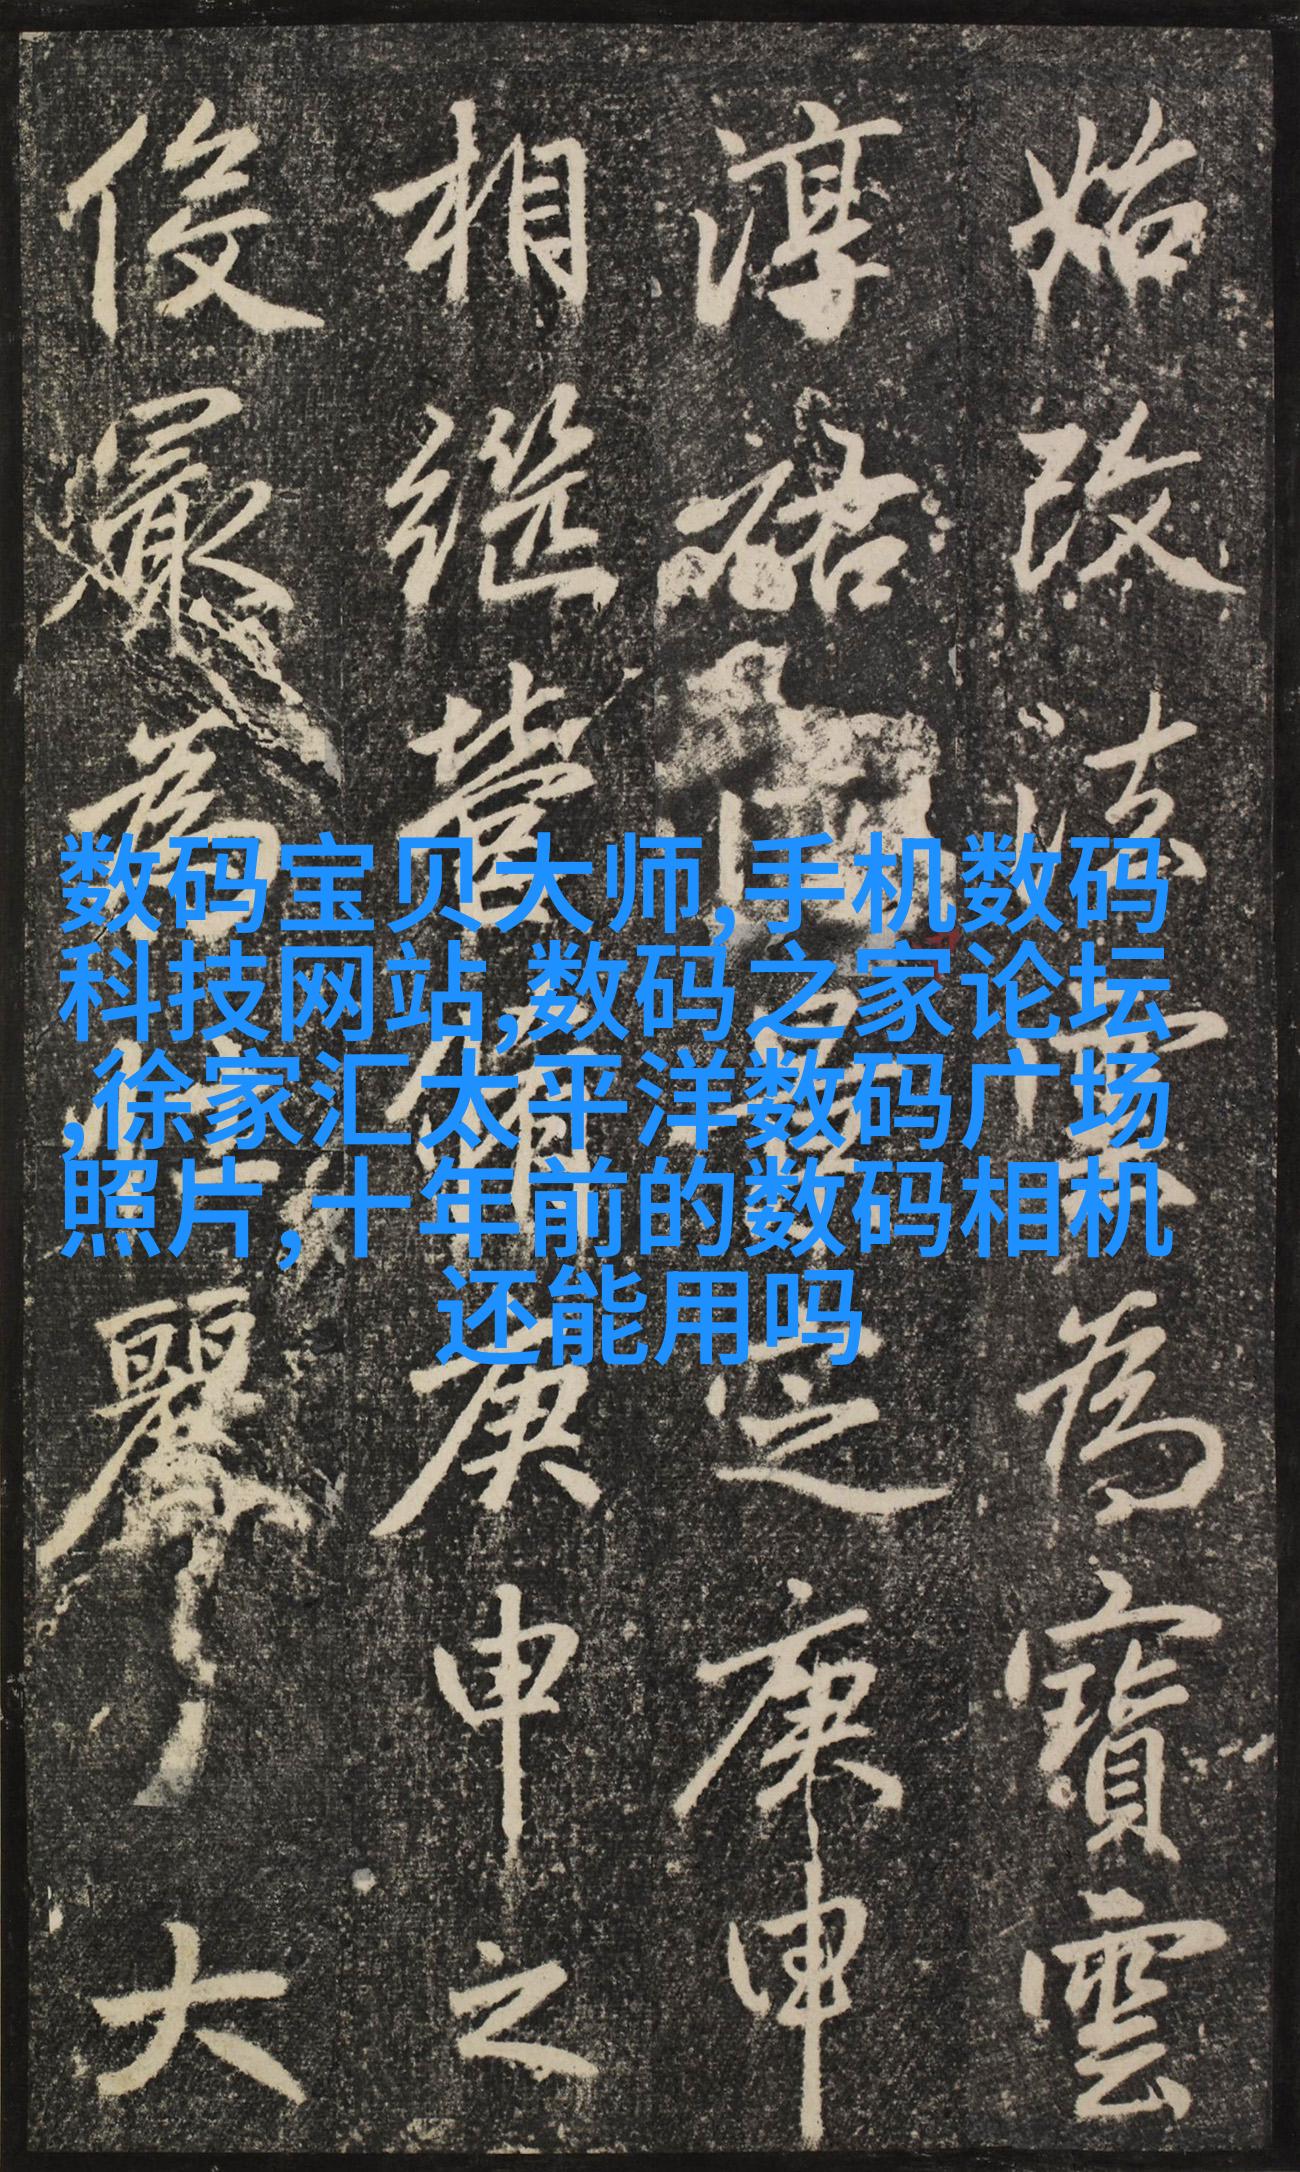 始改法雲為寶雲
淳祐景定庚申
相繼營庚申之
役最為麗大
数码宝贝大师,手机数码
科技网站,数码之家论坛
,徐家汇太平洋数码广场
照片,十年前的数码相机
还能用吗